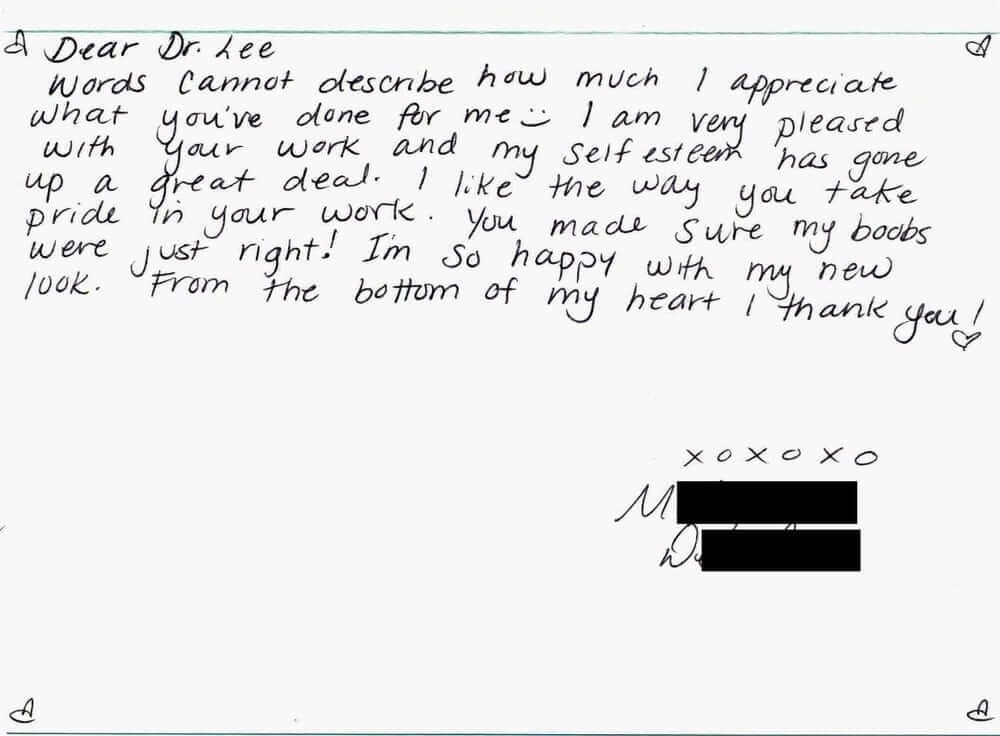 Dear Dr. Lee
Words cannot describe how much I appreciate
what you've done for me I am very pleased
with your work and my self esteem has gone
up a great deal. I like the way you take
pride in your work. You made sure my boobs
were just right! I'm so happy with my new
look. From the bottom of my heart I thank you!
xoxoxo
M